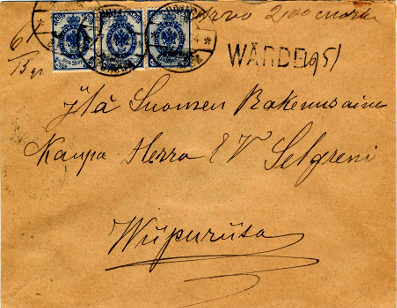 Arvo 200 mark
6
WÄRDE 95)
15 gr
Itä Suomen Rakennusaine
Kaupa Herra E V Selgreni
Wiipuriisa